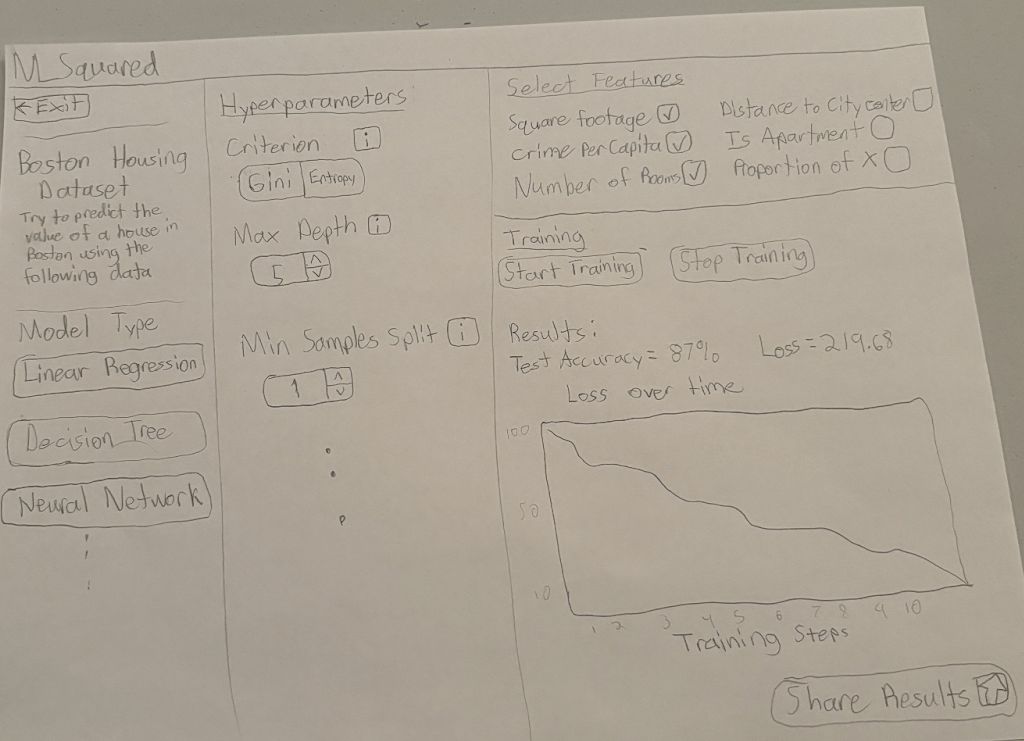 M Squared
← Exit
Boston Housing
Dataset
Try to predict the
value of a house in
Boston using the
following data
Model Type
Linear Regression
Decision Tree
Neural Network
Hyperparameters
Criterion i
Gini Entropy
Max Depth i
5
Min Samples Split i
1
Select Features
Square footage
Crime Per Capita
Number of Rooms
Distance to City center
Is Apartment
Proportion of X
Training
Start Training Stop Training
Results:
Test Accuracy = 87% Loss = 219.68
Loss over time
100
50
10
1 2 3 4 5 6 7 8 9 10
Training Steps
Share Results